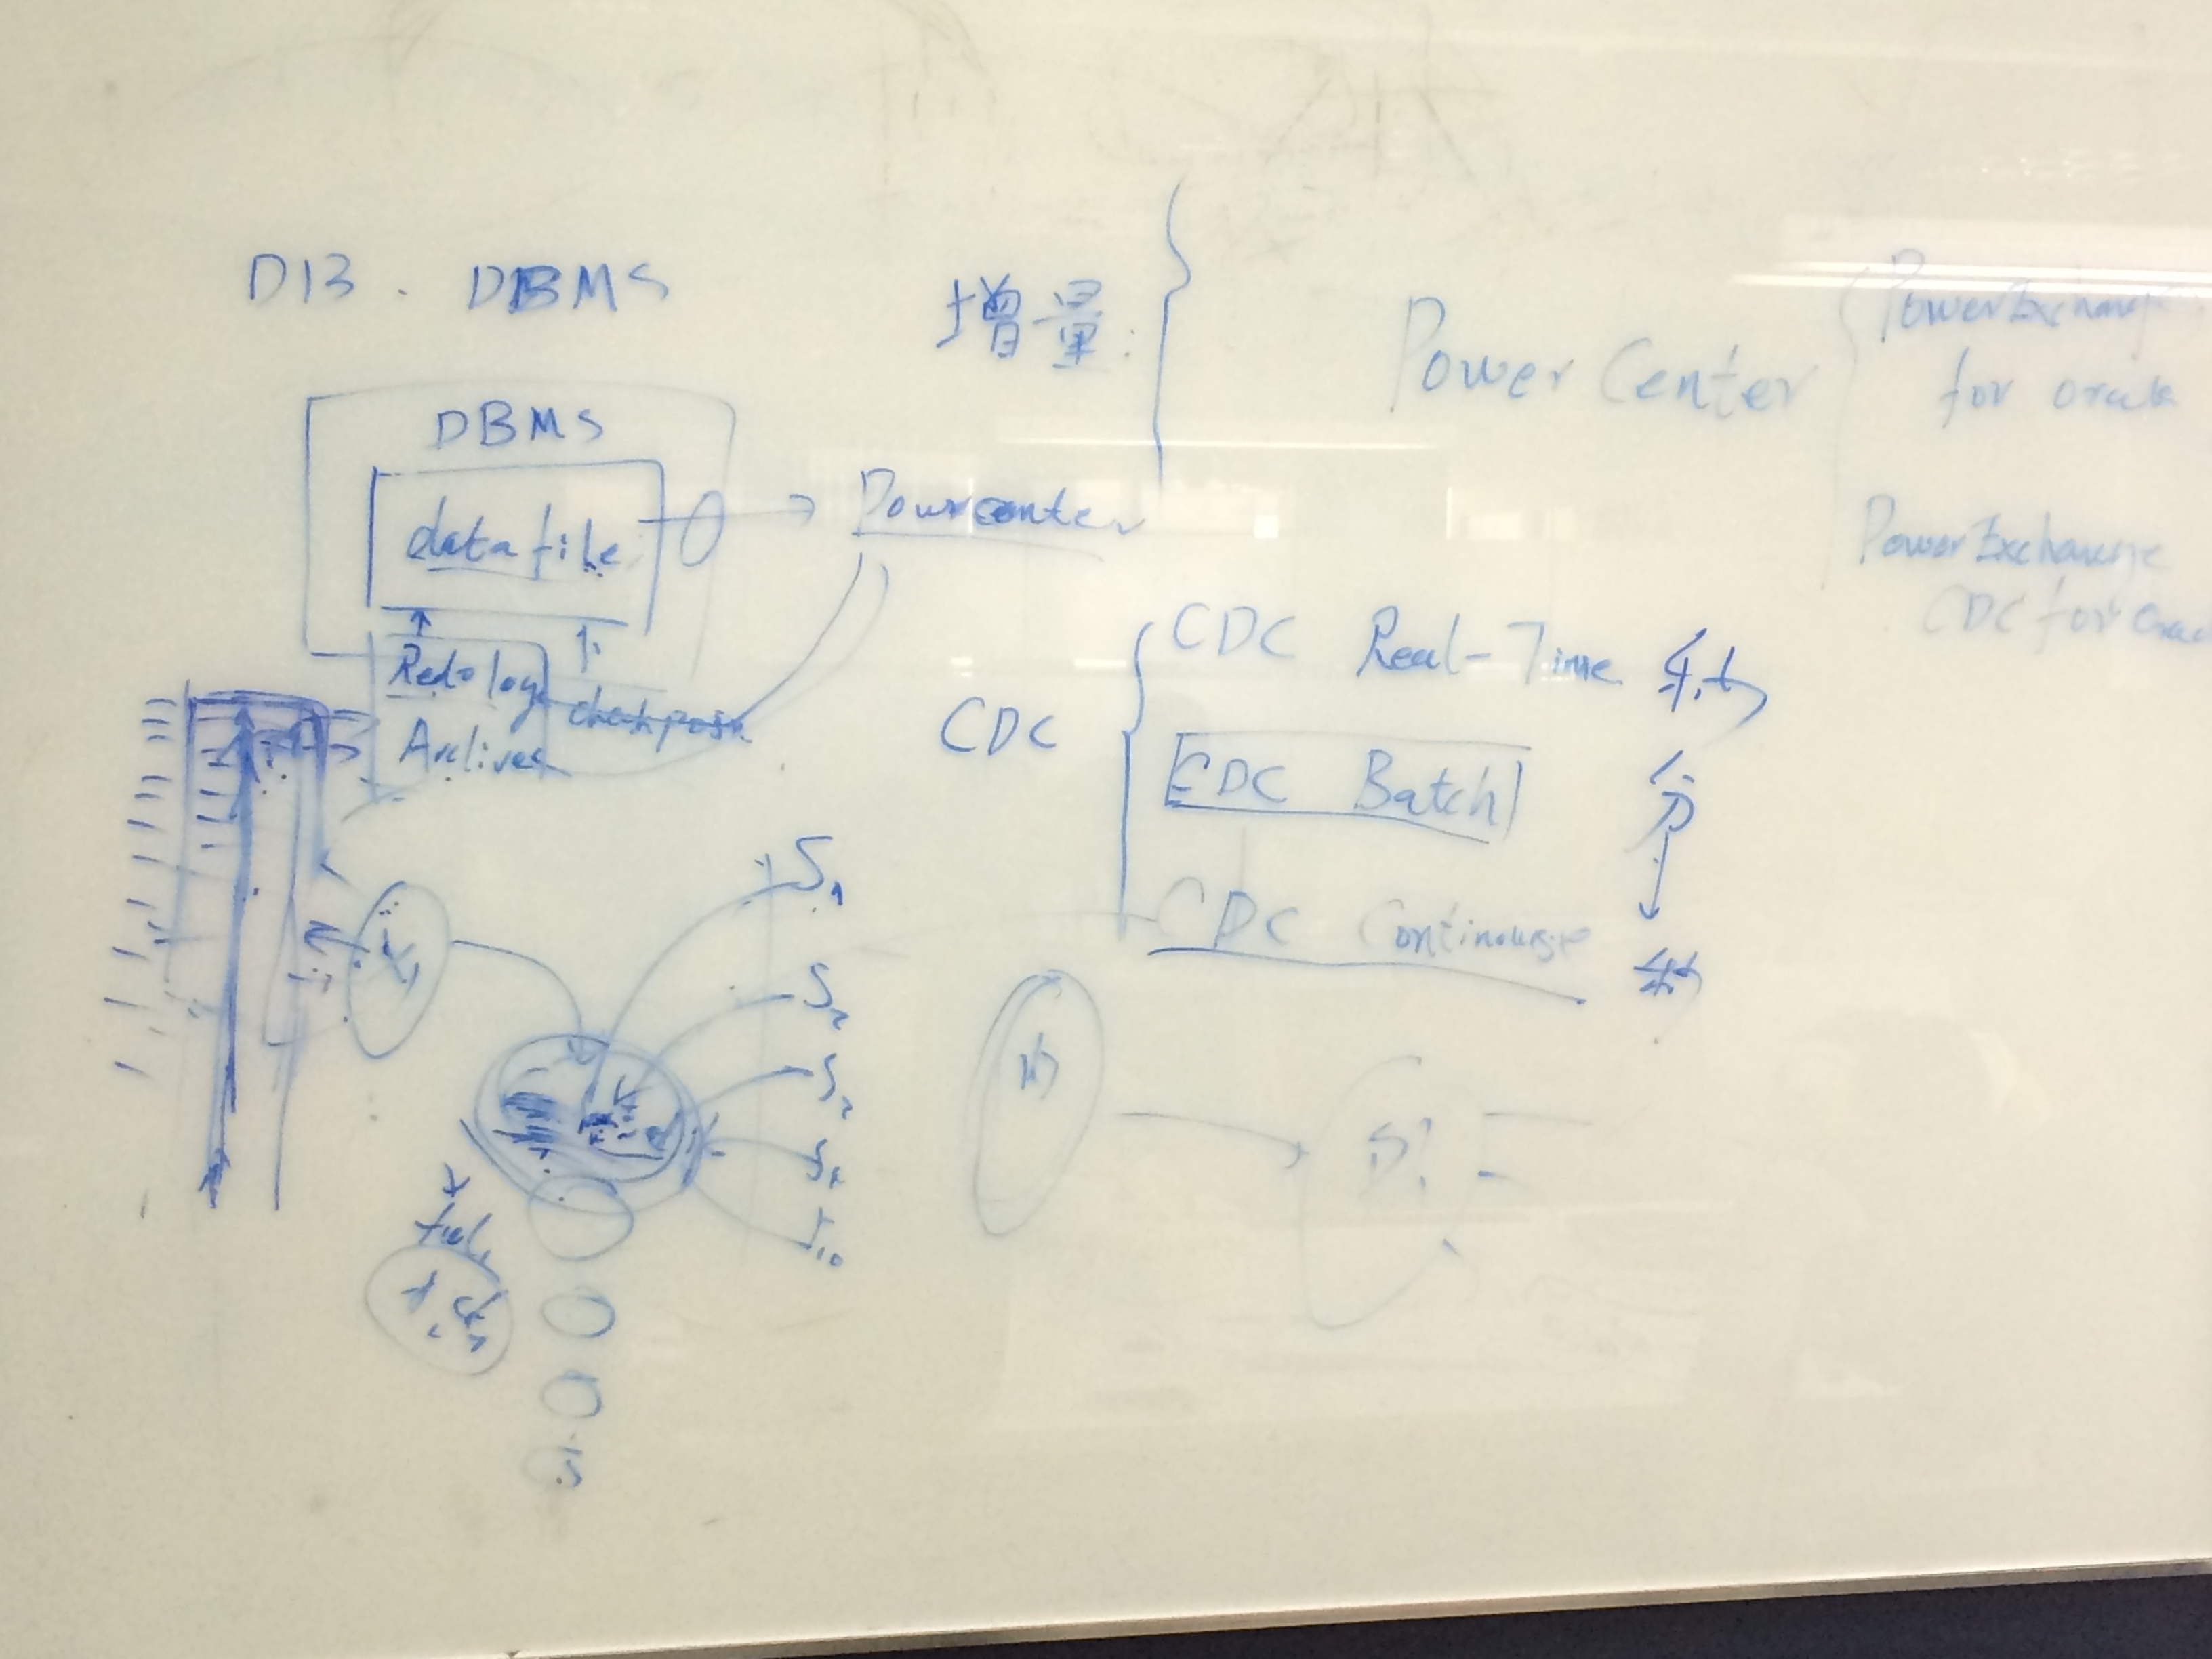 DB . DBMS
增量:
Power Center
PowerExchange
for oracle
PowerExchange
CDC for Orac
DBMS
data file
Powercenter
Redo log
Archives
checkpoint
CDC
CDC Real-Time 秒
CDC Batch 分
CDC Continuous 秒
S1
S2
S10